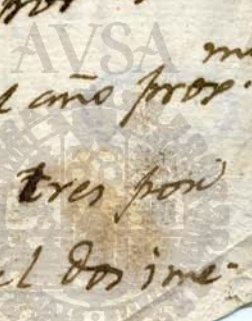 AVSA
año prox.mo
tres por
el dos ime-